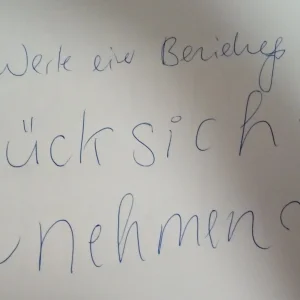 Werte einer Beziehung
ücksich
nehmen